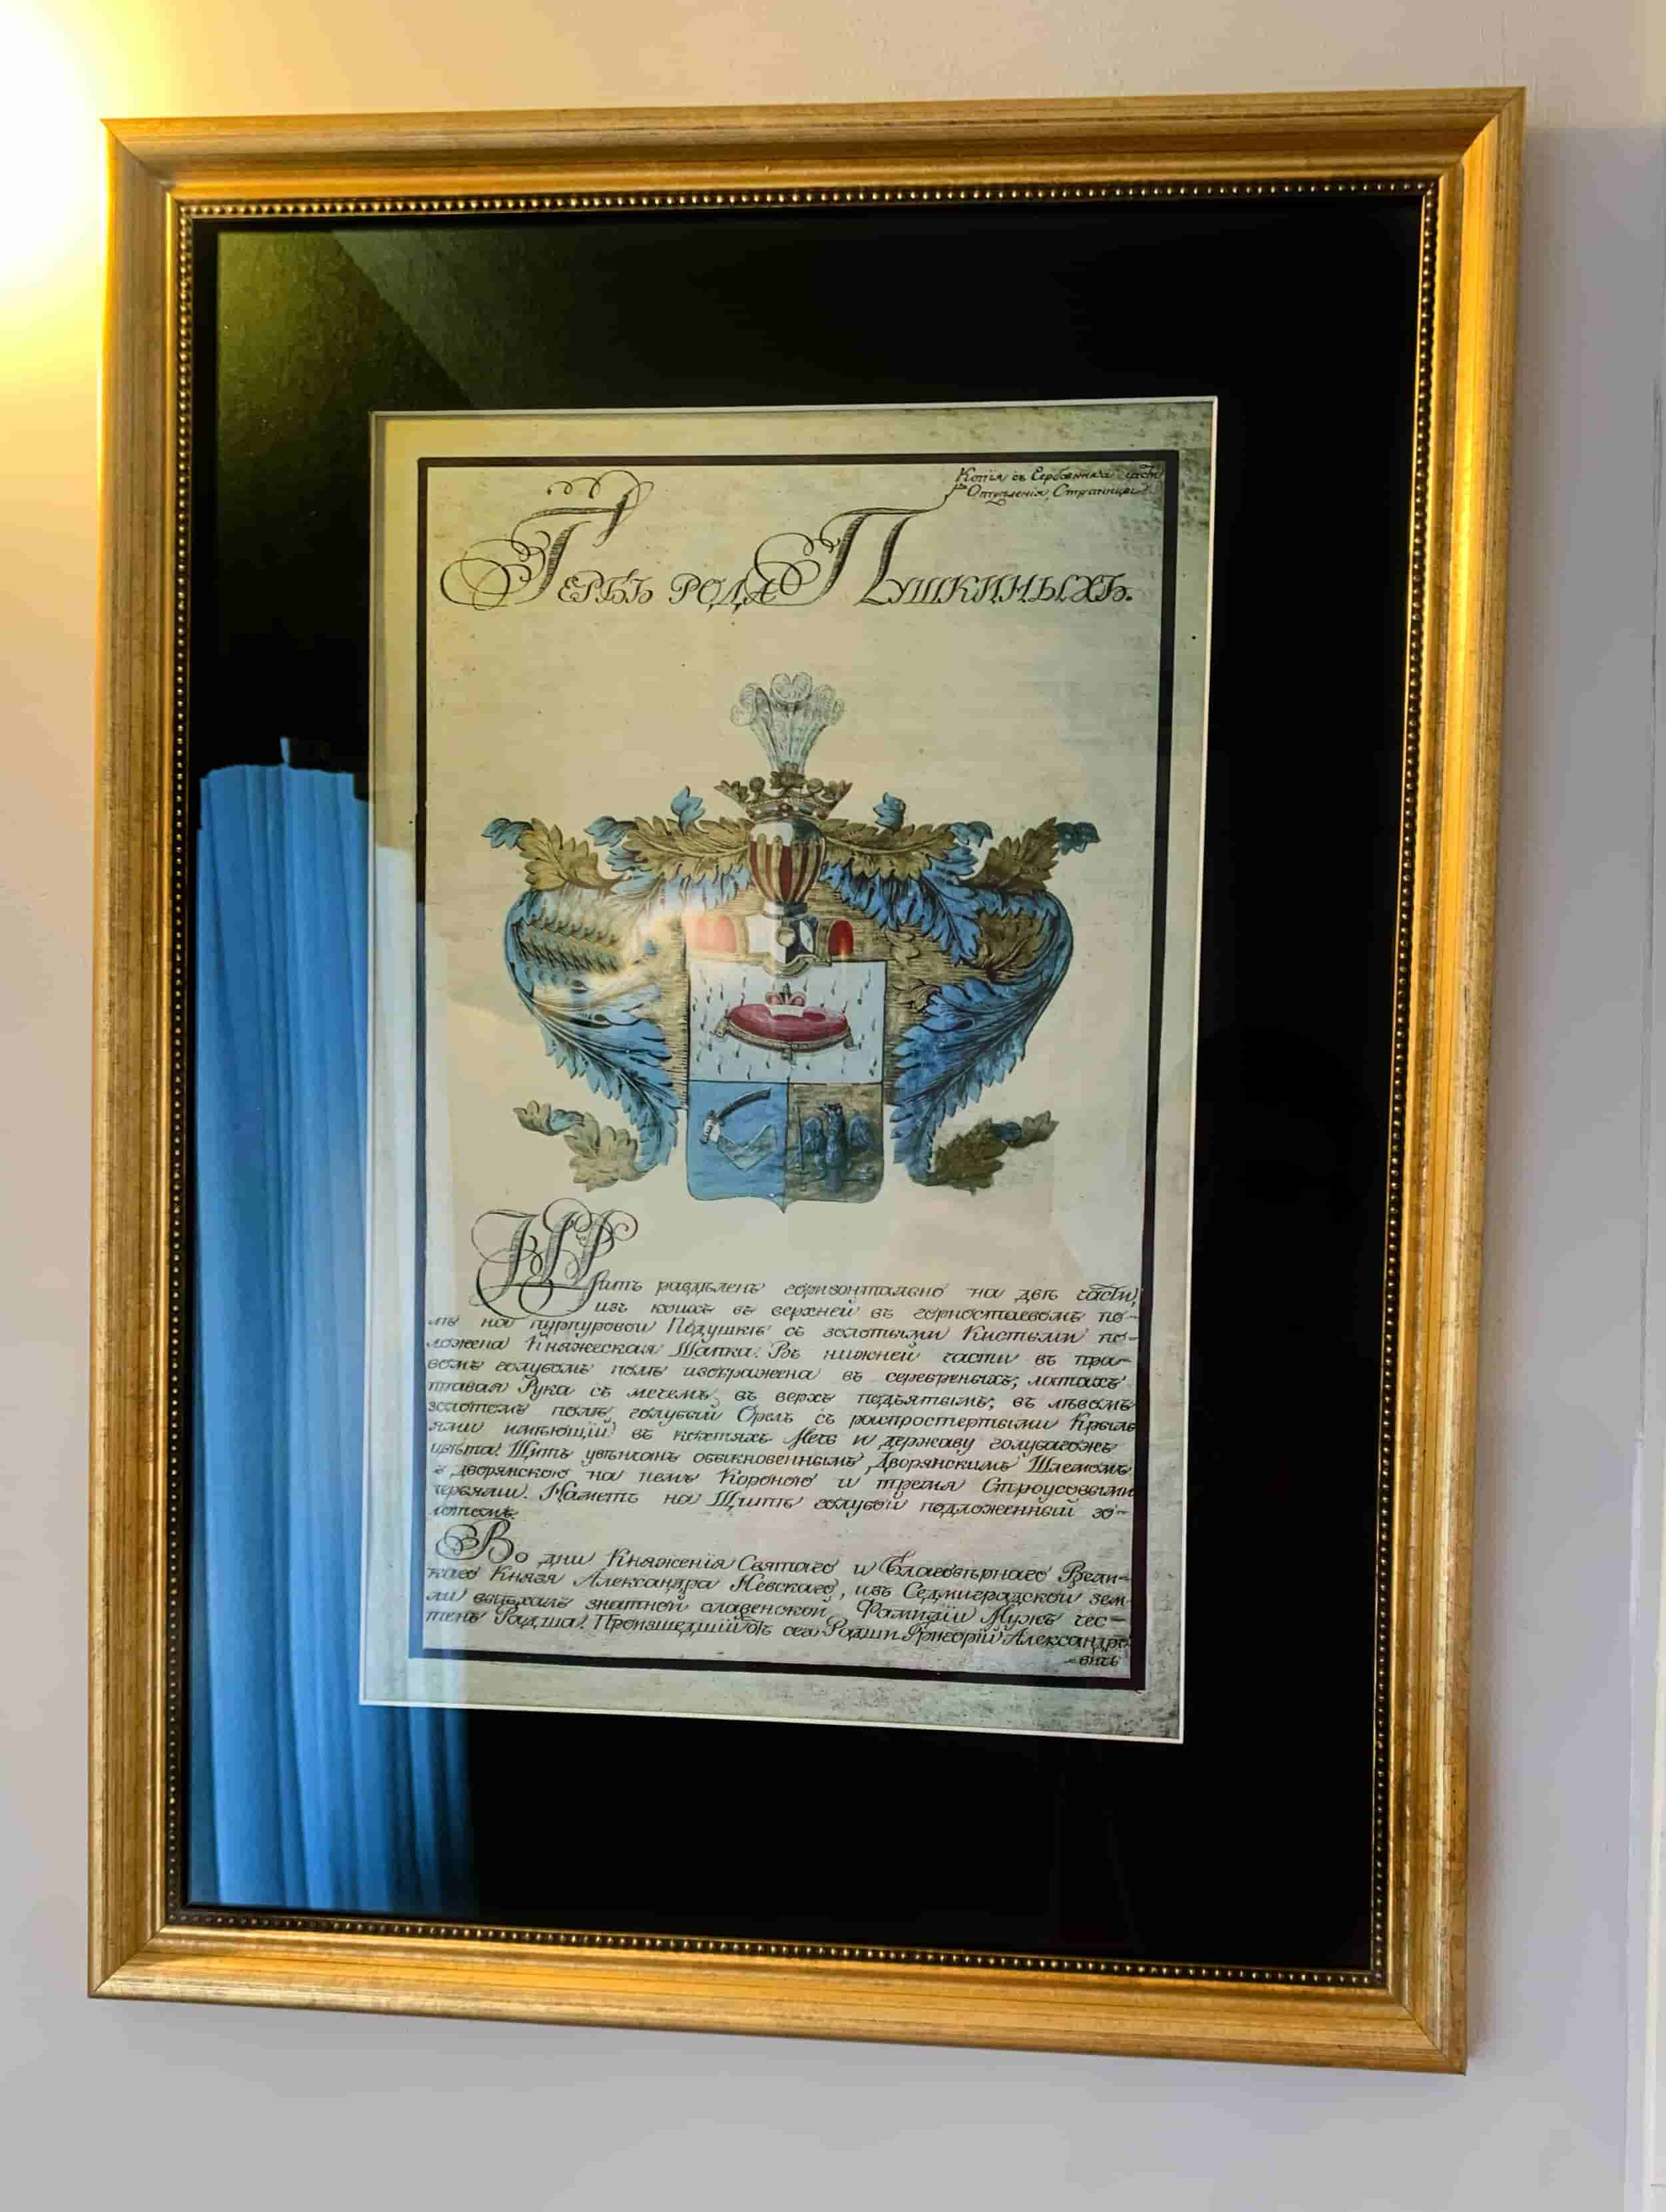 Копія съ Гербовника части
Отдѣленія, Страницы
Гербъ рода Пушкиныхъ.
Щитъ раздѣленъ горизонтально на двѣ части,
изъ коихъ въ верхней въ горностаевомъ по-
лѣ на пурпуровой Подушкѣ съ золотыми Кистьми по-
ложена Княжеская Шапка. Въ нижней части въ пра-
вомъ голубомъ полѣ изображена въ серебреныхъ, латахъ
правая Рука съ мечемъ, въ верхъ подъятымъ; въ лѣвомъ
золотомъ полѣ, голубый Орелъ съ роспростертыми Крыль
ями имѣющій въ кохтяхъ Мечь и державу голубагожъ
цвѣта. Щитъ увѣнчанъ обыкновеннымъ Дворянскимъ Шлемомъ
съ дворянскою на немъ Короною и тремя Строусовыми
перьями. Наметъ на Щитѣ голубой подложенный зо-
лотомъ.
Во дни Княженія Святаго и Благовѣрнаго Вели-
каго Князя Александра Невскаго, изъ Седмиградской зем
ли выѣхалъ знатной славенской Фамиліи Мужъ чес-
тенъ Радша. Произшедшій отъ сего Радши Григорій Александро
-вичь